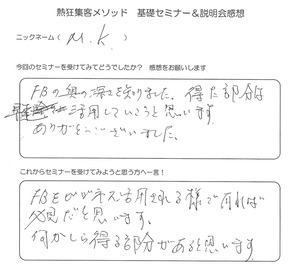 熱狂集客メソッド 基礎セミナー&説明会感想
ニックネーム( M.K. )
今回のセミナーを受けてみてどうでしたか? 感想をお願いします
FBの奥の深さを知りました。得た部分は
活用していこうと思います。
ありがとうございました。
これからセミナーを受けてみようと思う方へ一言!
FBをビジネス活用される様であれば
必見だと思います。
何かしら得る部分があると思います。